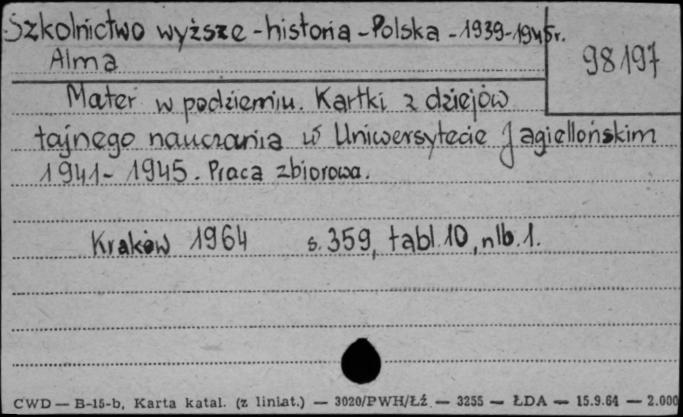 Szkolnictwo wyższe - historia - Polska - 1939-1945r.
98197
Alma
Mater w podziemiu. Kartki z dziejów
tajnego nauczania w Uniwersytecie Jagiellońskim
1941-1945. Praca zbiorowa.
Kraków 1964 s. 359, tabl. 10, nlb. 1.
CWD — B-15-b, Karta katal. (z liniat.) — 3020/PWH/ŁŹ. — 3255 — ŁDA — 15.9.64 — 2.000